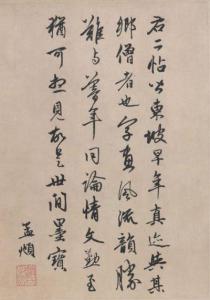 右二帖皆東坡早年真迹與其
鄉僧者也字畫風流韻勝
難與暮年同論情文勤至
猶可想見故是世間墨寶
孟頫